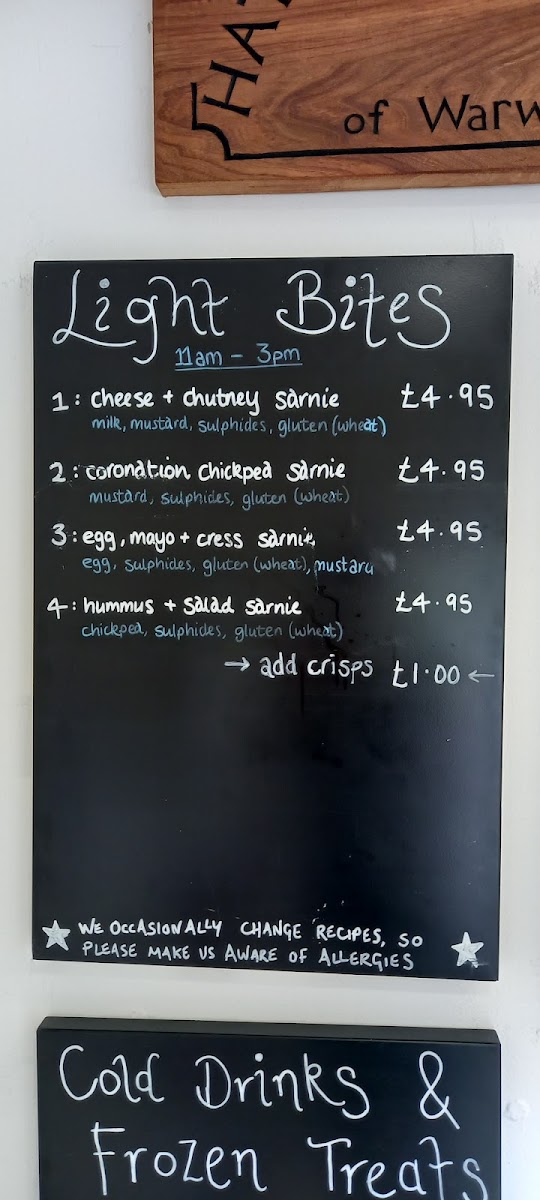 HAT
of Warw
Light Bites
11am - 3pm
1: cheese + chutney sarnie £4.95
milk, mustard, sulphides, gluten (wheat)
2: coronation chickpea sarnie £4.95
mustard, sulphides, gluten (wheat)
3: egg, mayo + cress sarnie £4.95
egg, sulphides, gluten (wheat), mustard
4: hummus + salad sarnie £4.95
chickpea, sulphides, gluten (wheat)
→ add crisps £1.00 ←
WE OCCASIONALLY CHANGE RECIPES, SO
PLEASE MAKE US AWARE OF ALLERGIES
Cold Drinks &
Frozen Treats